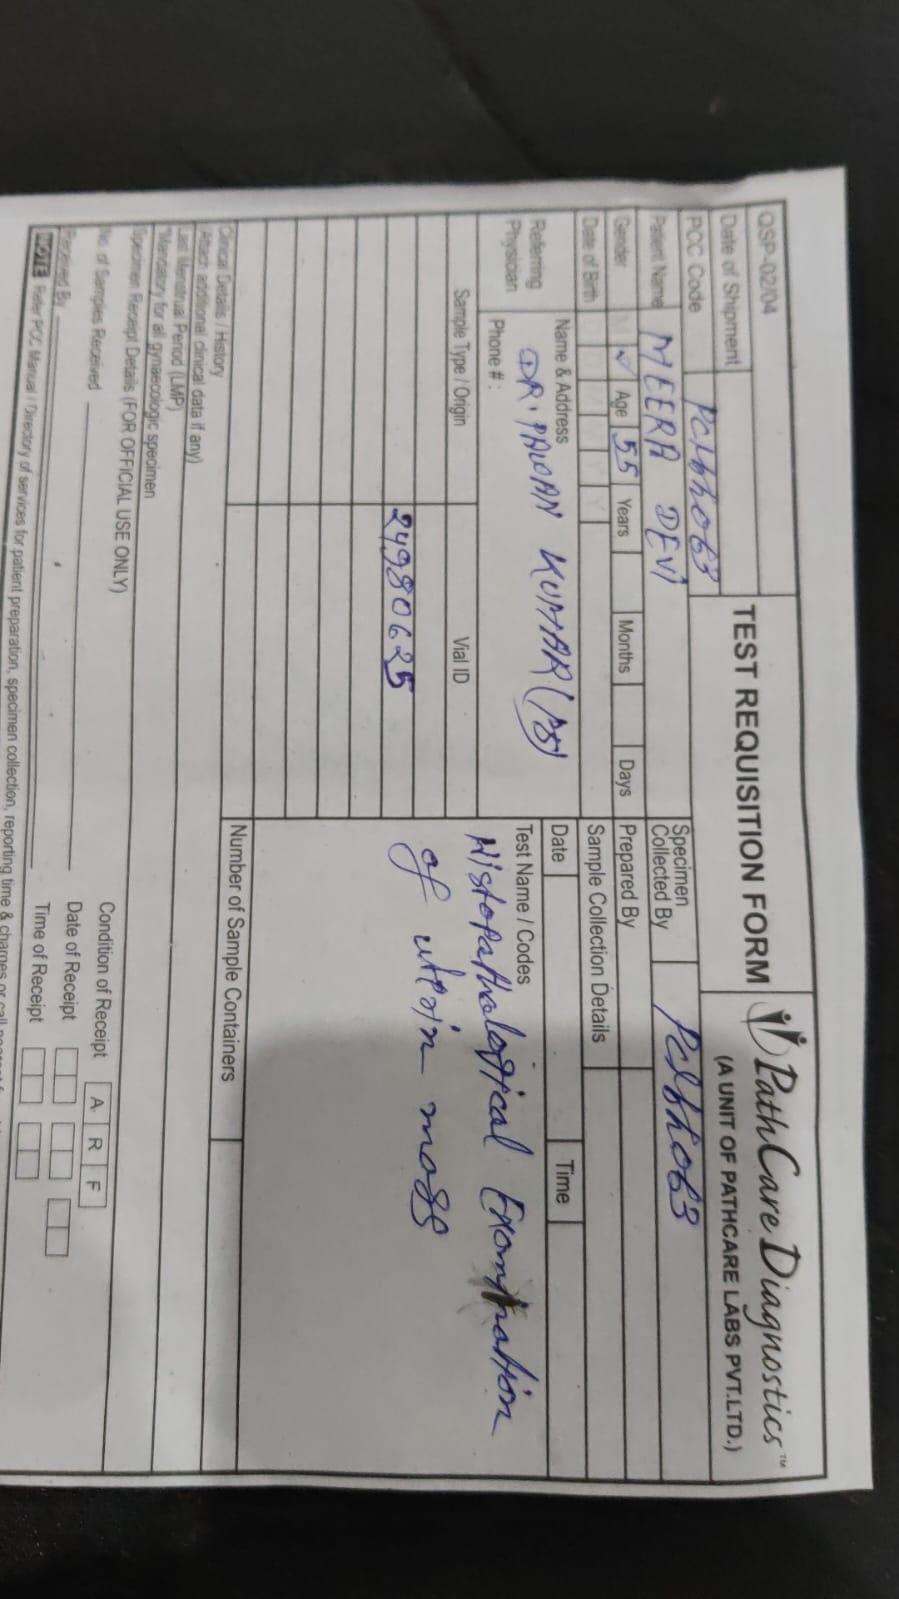 QSP-02/04
TEST REQUISITION FORM
PathCare Diagnostics™
(A UNIT OF PATHCARE LABS PVT.LTD.)
Date of Shipment
PCC Code
Patient Name MEERA DEVI
Gender M ✓ Age 55 Years Months Days
Date of Birth
Specimen Collected By
Prepared By
Sample Collection Details
Date Time
Referring Physician
Name & Address
DR. PAWAN KUMAR
Phone # :
Sample Type / Origin Vial ID
24980625
Test Name / Codes
Histopathological
of mass
Number of Sample Containers
Clinical Details / History
(Attach additional clinical data if any)
Last Menstrual Period (LMP)
*Mandatory for all gynaecologic specimen
Specimen Receipt Details (FOR OFFICIAL USE ONLY)
No. of Samples Received
Condition of Receipt A R F
Received By
Date of Receipt
Time of Receipt
NOTE Refer PCC Manual / Directory of services for patient preparation, specimen collection, reporting time & charges or call